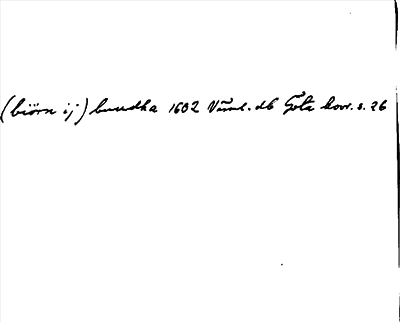 (biörn ij) buudha 1602 Värml. db Göta hovr. s. 26